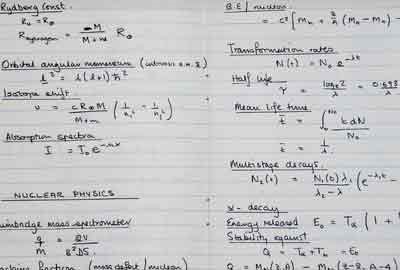 Rydberg Const.
R∞ = R∞
R Hydrogen = M / M+m R∞
Orbital angular momentum (intrinsic a.m. S)
l² = l(l+1)ħ²
Isotope shift.
υ = cR∞M / M+m (1/n₁² - 1/n₂²)
Absorption spectra
I = I₀e
NUCLEAR PHYSICS
Bainbridge mass spectrometer
q/M = 2V / B²DS
fraction (mass defect / nucleon)
B.E / nucleon
= c² [Mn + Z/A (MH - Mn) -
Transformation rates
N(t) = N₀ e^-λt
Half life
τ = loge2 / λ = 0.693 / λ
Mean life time
t̄ = ∫₀^N₀ t dN / N₀
t̄ = 1/λ
Multistage decays.
N₂(t) = N₁(0) λ₁ / λ₂ - λ₁ (e^-λ₁t -
α - decay
Energy released E₀ = Tα (1 +
Stability against
Q = Tα + Tb = E₀
Q = M(Z,A) - M(Z-2, A-4)